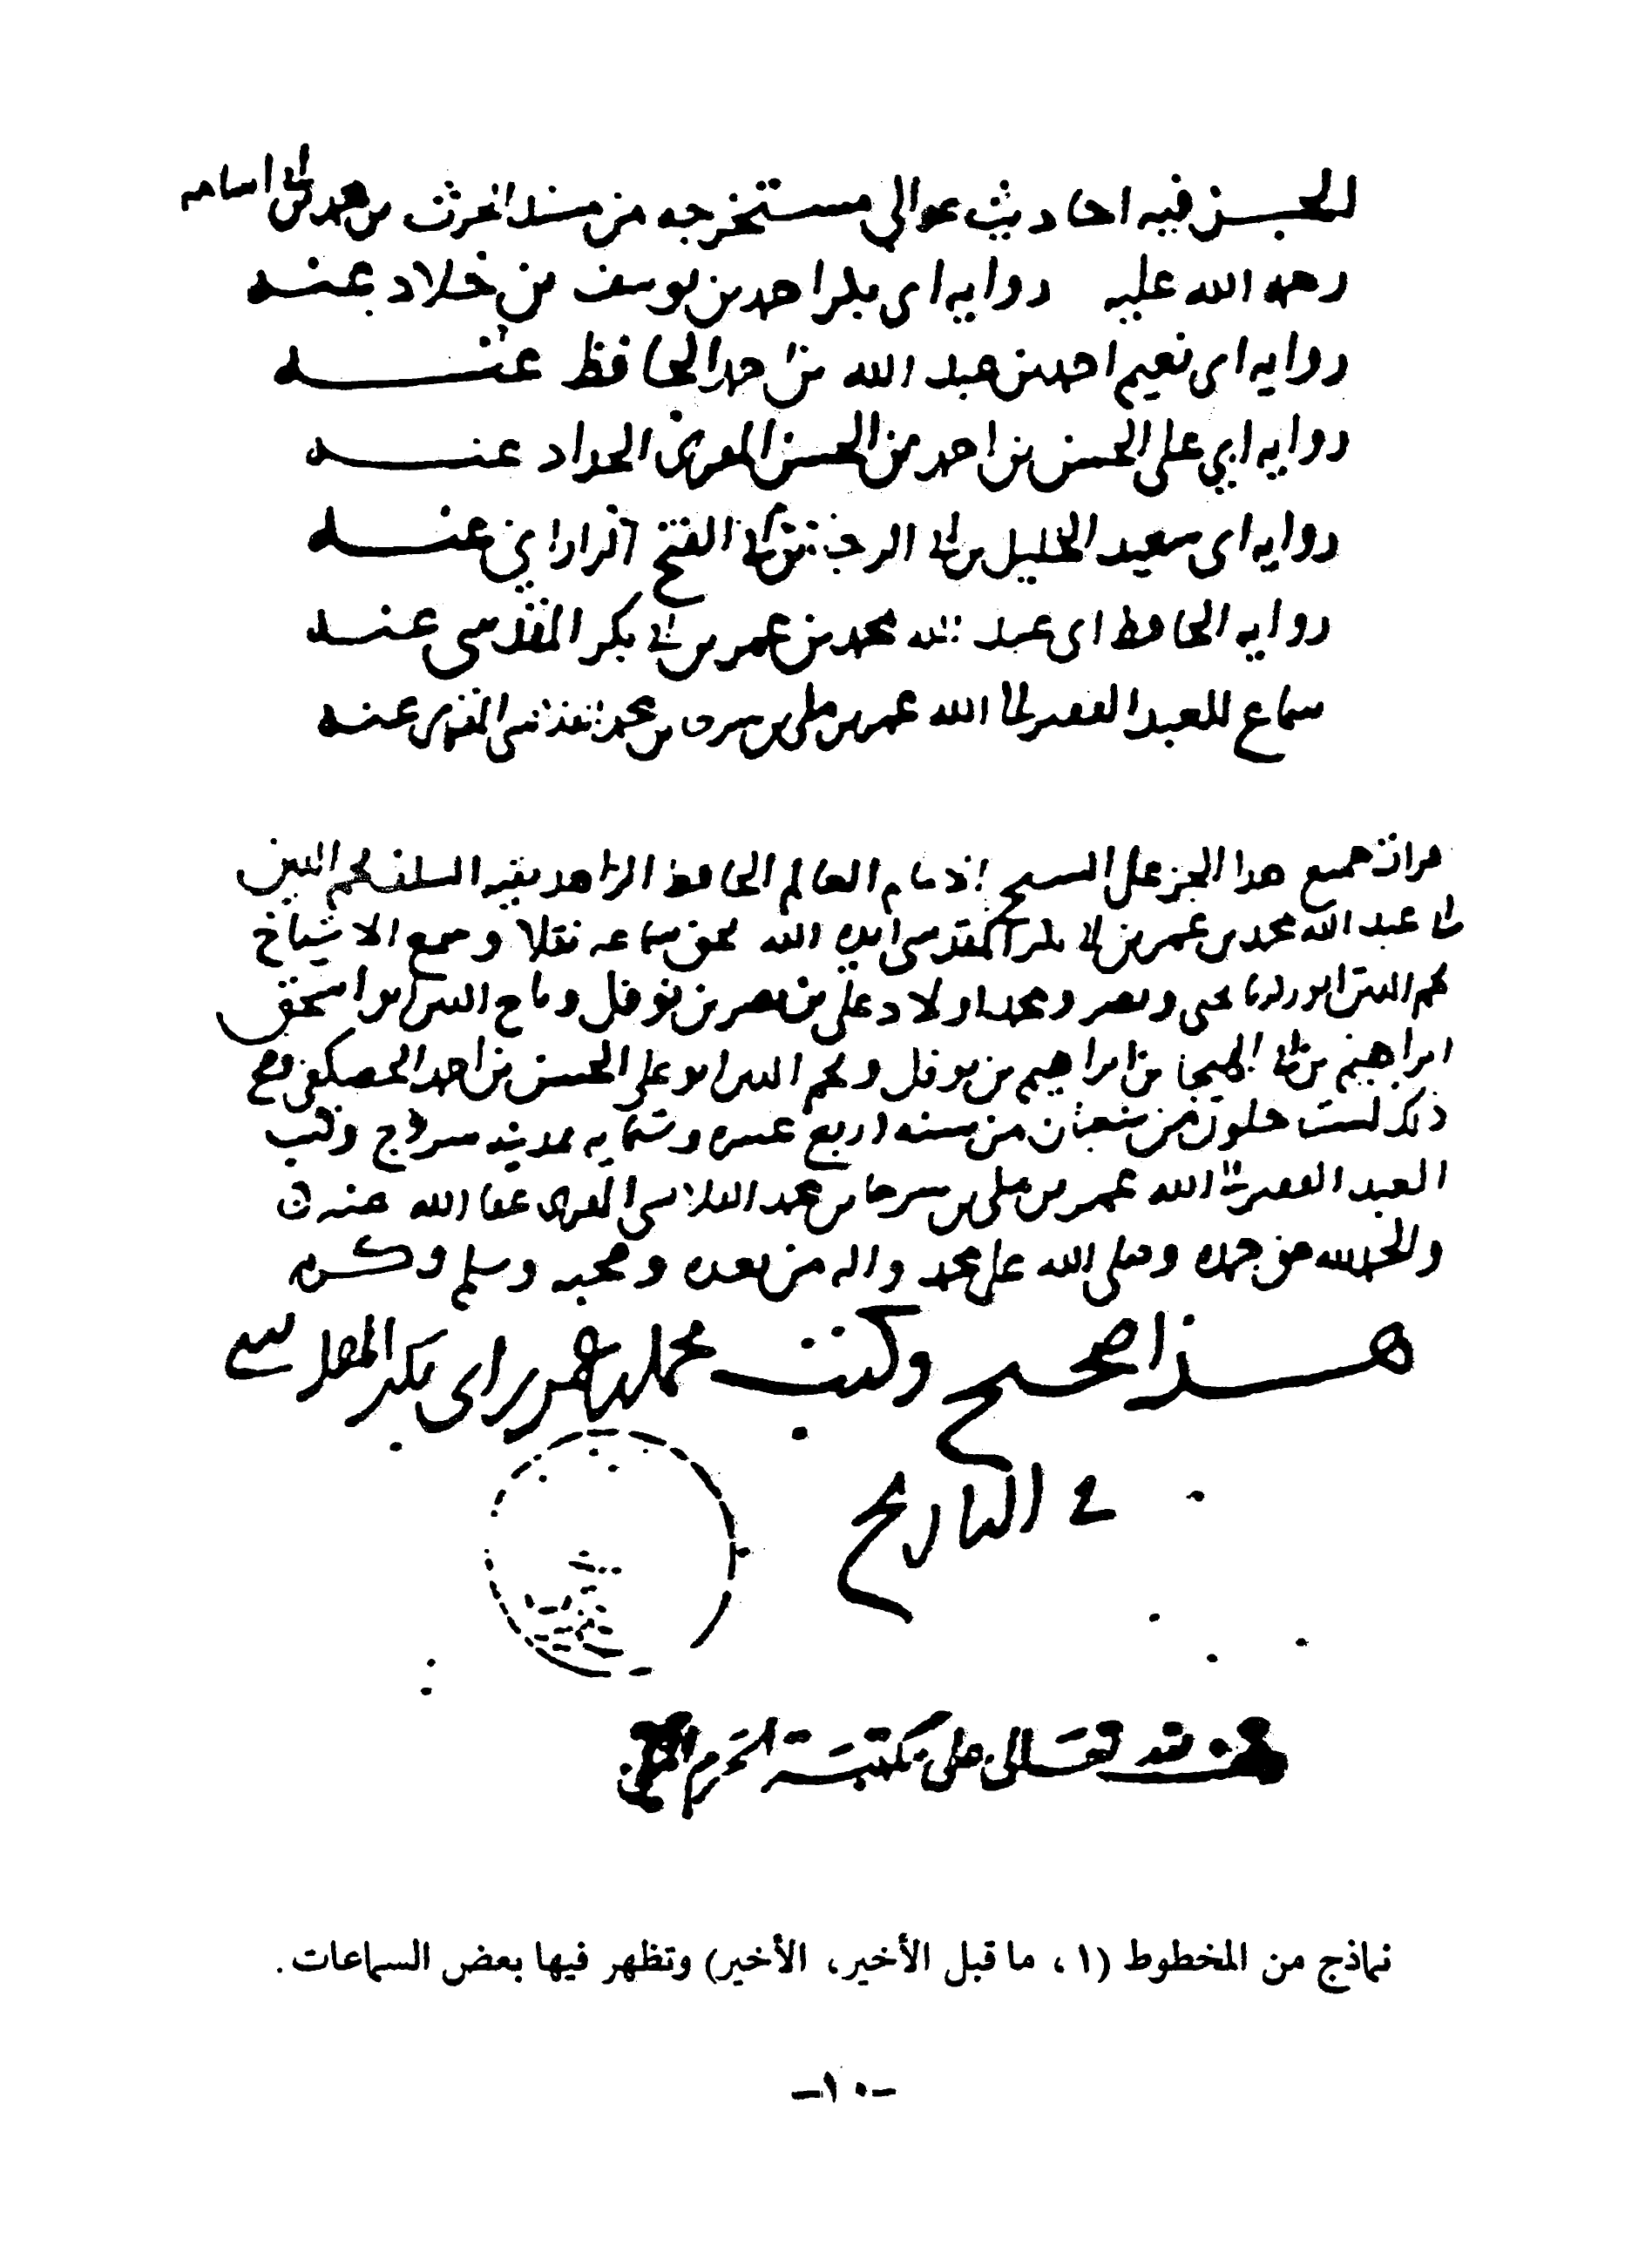 الجز فيه احاديث عوالي مستخرجه من مسند الحرث بن محمد بن ابي اسامه
رحمه الله عليه روايه ابي بكر احمد بن يوسف بن خلاد عنه
روايه ابي نعيم احمد بن عبد الله بن احمد الحافظ عنه
روايه ابي علي الحسن بن احمد بن الحسن المقرى الحداد عنه
روايه ابي سعيد الخليل بن ابي الرجا بن ابي الفتح الراراني عنه
روايه الحافظ ابي عبد الله محمد بن عمر بن ابي بكر المقدسي عنه
سماع للعبد الفقير الى الله عمر بن علي بن سرحان بن محمد المقرى عنه
قرات جميع هذا الجز على الشيخ الامام العالم الحافظ الزاهد بقيه السلف
ابي عبد الله محمد بن عمر بن ابي بكر المقدسي ايده الله بحق سماعه نقلا وسمع الاشياخ
ابو زكريا يحيى ونصر ومحمد اولاد علي بن نصر بن نوفل وتاج الدين ابو اسحق
ابراهيم بن ابي الهيجا بن ابراهيم بن نوفل ونجم الدين ابو علي الحسن بن احمد الحصكفي وصح
ذلك لست خلون من شعبان من سنه اربع عشره وستمايه بمدينه سروج وكتب
العبد الفقير الى الله عمر بن علي بن سرحان بن محمد المقرى عفا الله عنه
والحمد لله حق حمده وصلى الله على محمد واله من بعده وصحبه وسلم وكرم
هذا صحيح وكتب محمد بن عمر بن ابي بكر المقدسي
في التاريخ
وقف لله تعالى على مكتبة الحرم
نماذج من المخطوط (١ ، ما قبل الأخير، الأخير) وتظهر فيها بعض السماعات.
-١٠-